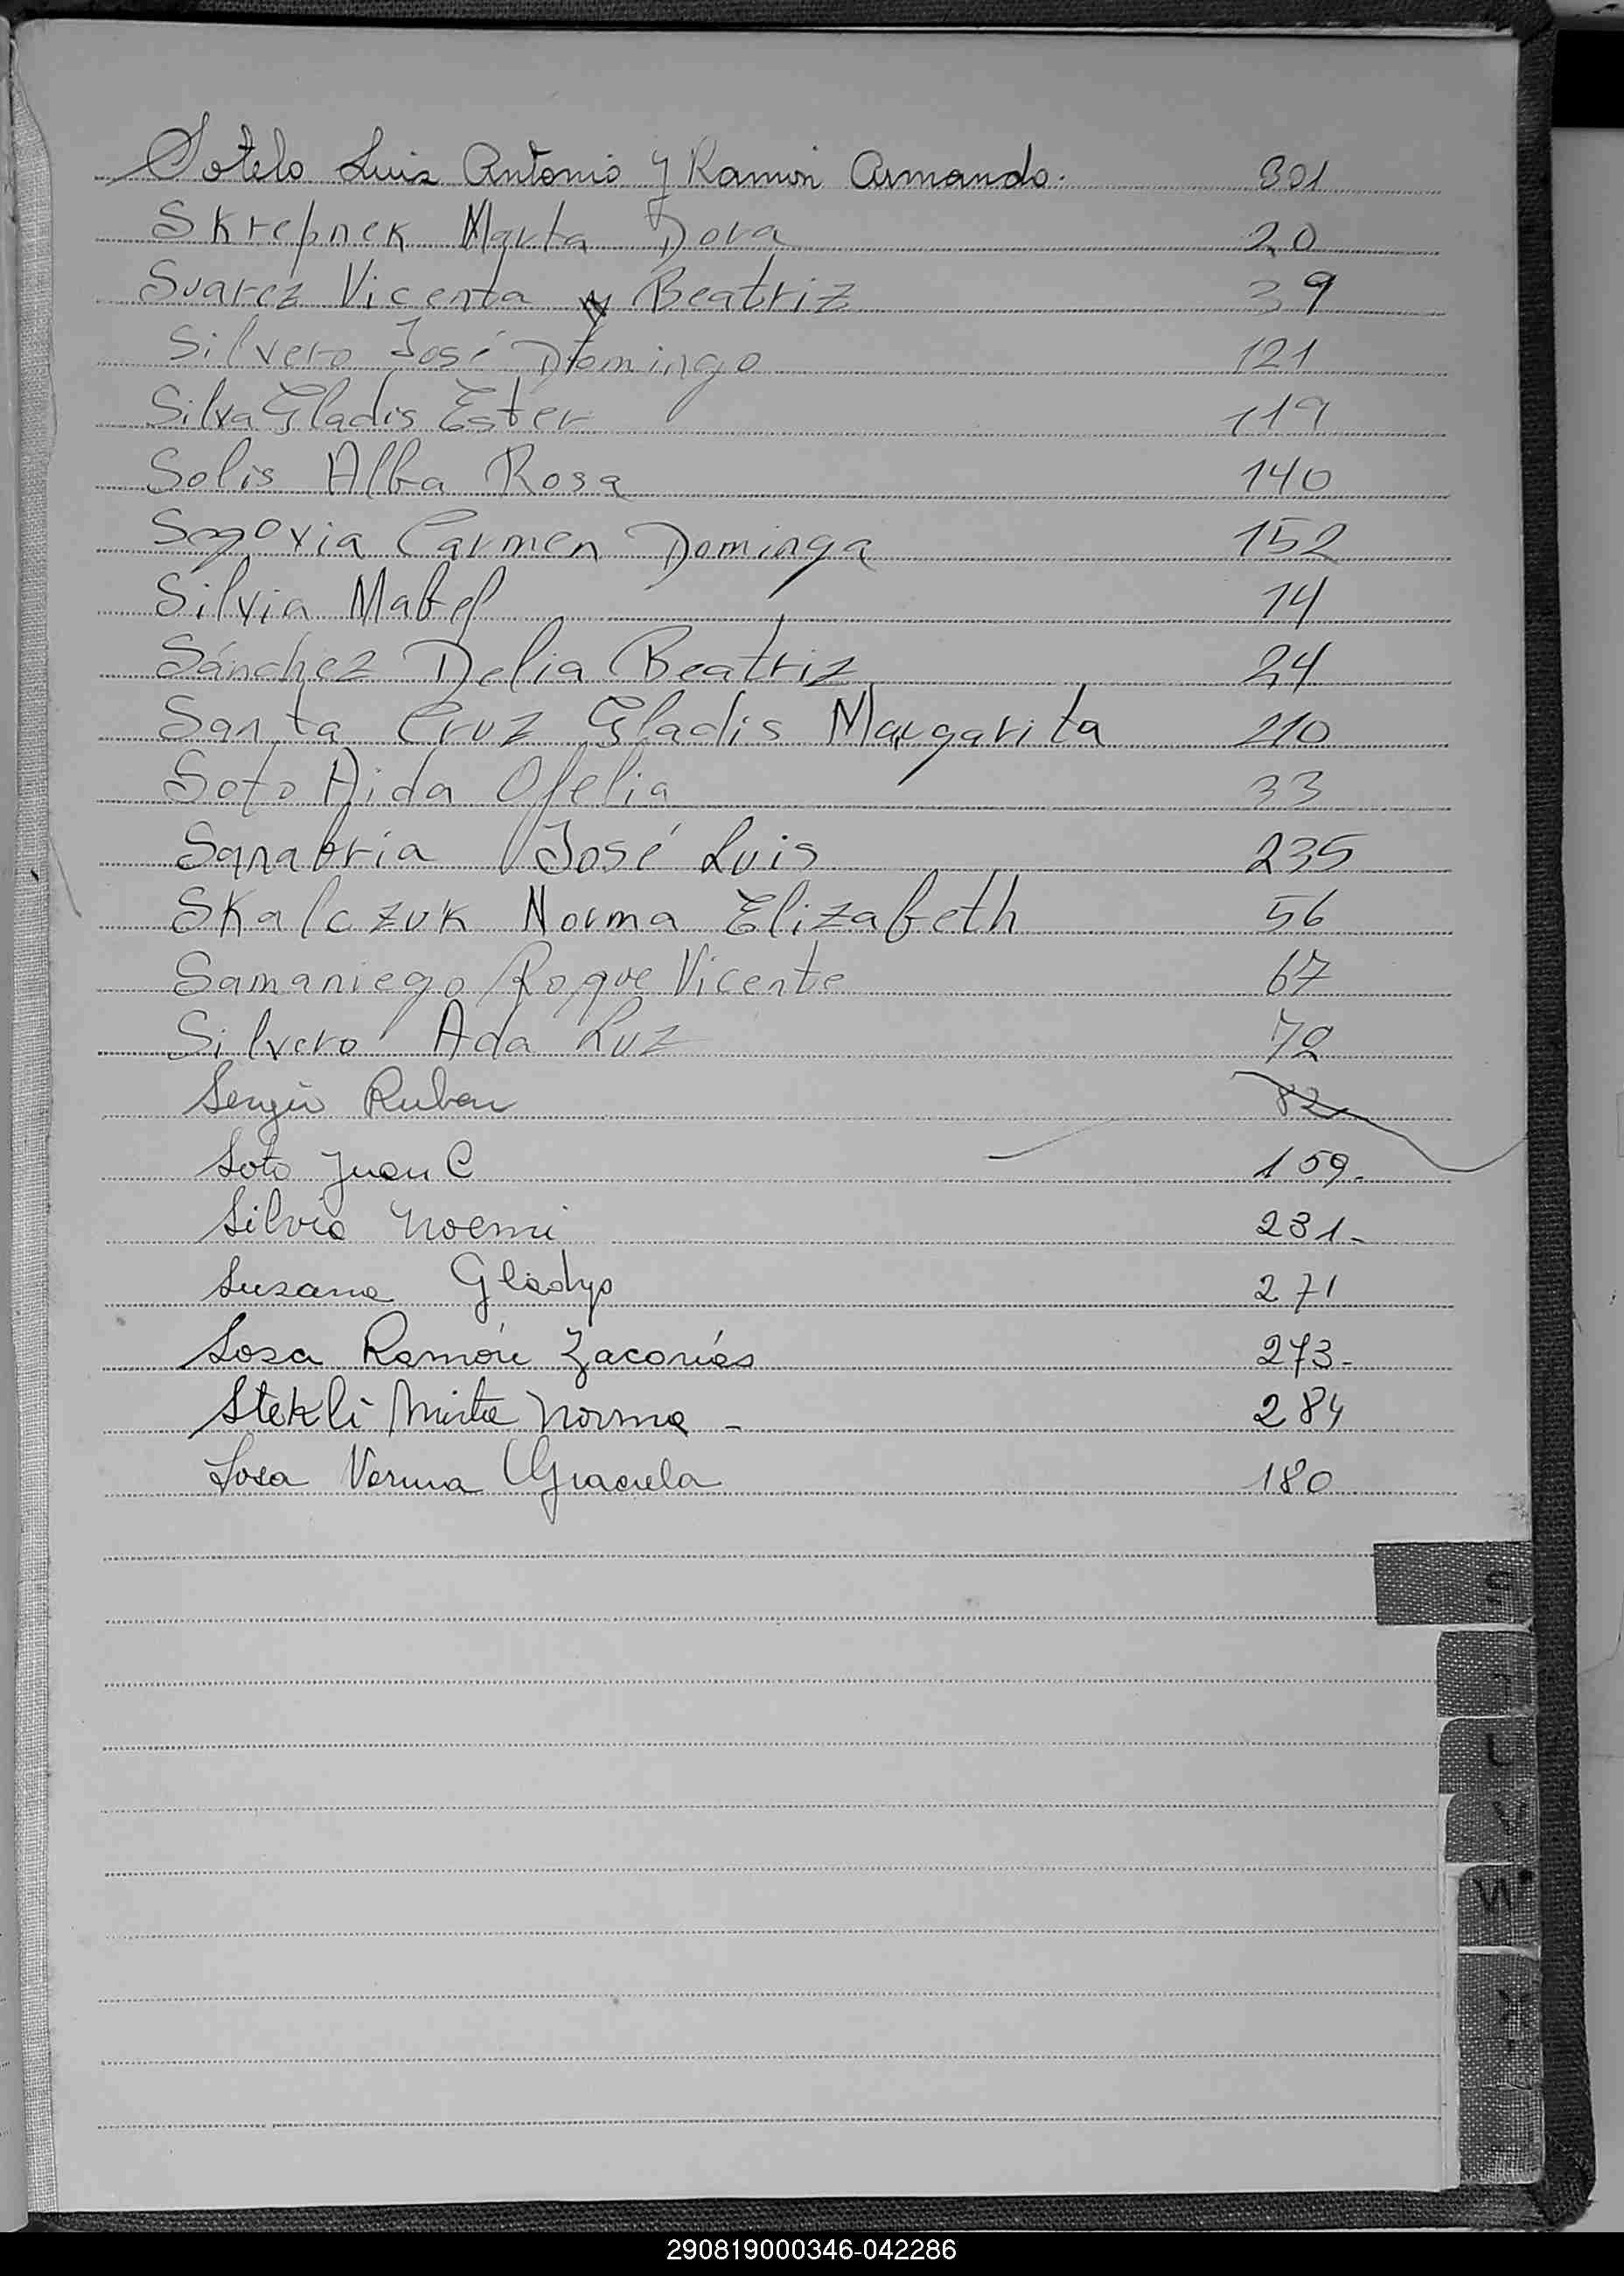 Sotelo Luis Antonio y Ramon Armando. 301
Skrepnek Marta Dora 20
Suarez Vicenta y Beatriz 39
Silvero José Domingo 121
Silva Gladis Ester 119
Solis Alba Rosa 140
Segovia Carmen Dominga 152
Silvia Mabel 14
Sánchez Delia Beatriz 24
Santa Cruz Gladis Margarita 210
Soto Aida Ofelia 33
Sanabria José Luis 235
Skalczuk Norma Elizabeth 56
Samaniego Roque Vicente 67
Silvero Ada Luz 72
Sergio Ruben 82
Soto Juan C 159.
Silvia Noemi 231-
Susana Gladys 271
Sosa Ramón Zacarías 273-
Stekli Mirta Norma - 284
Sosa Norma Graciela 180
290819000346-042286